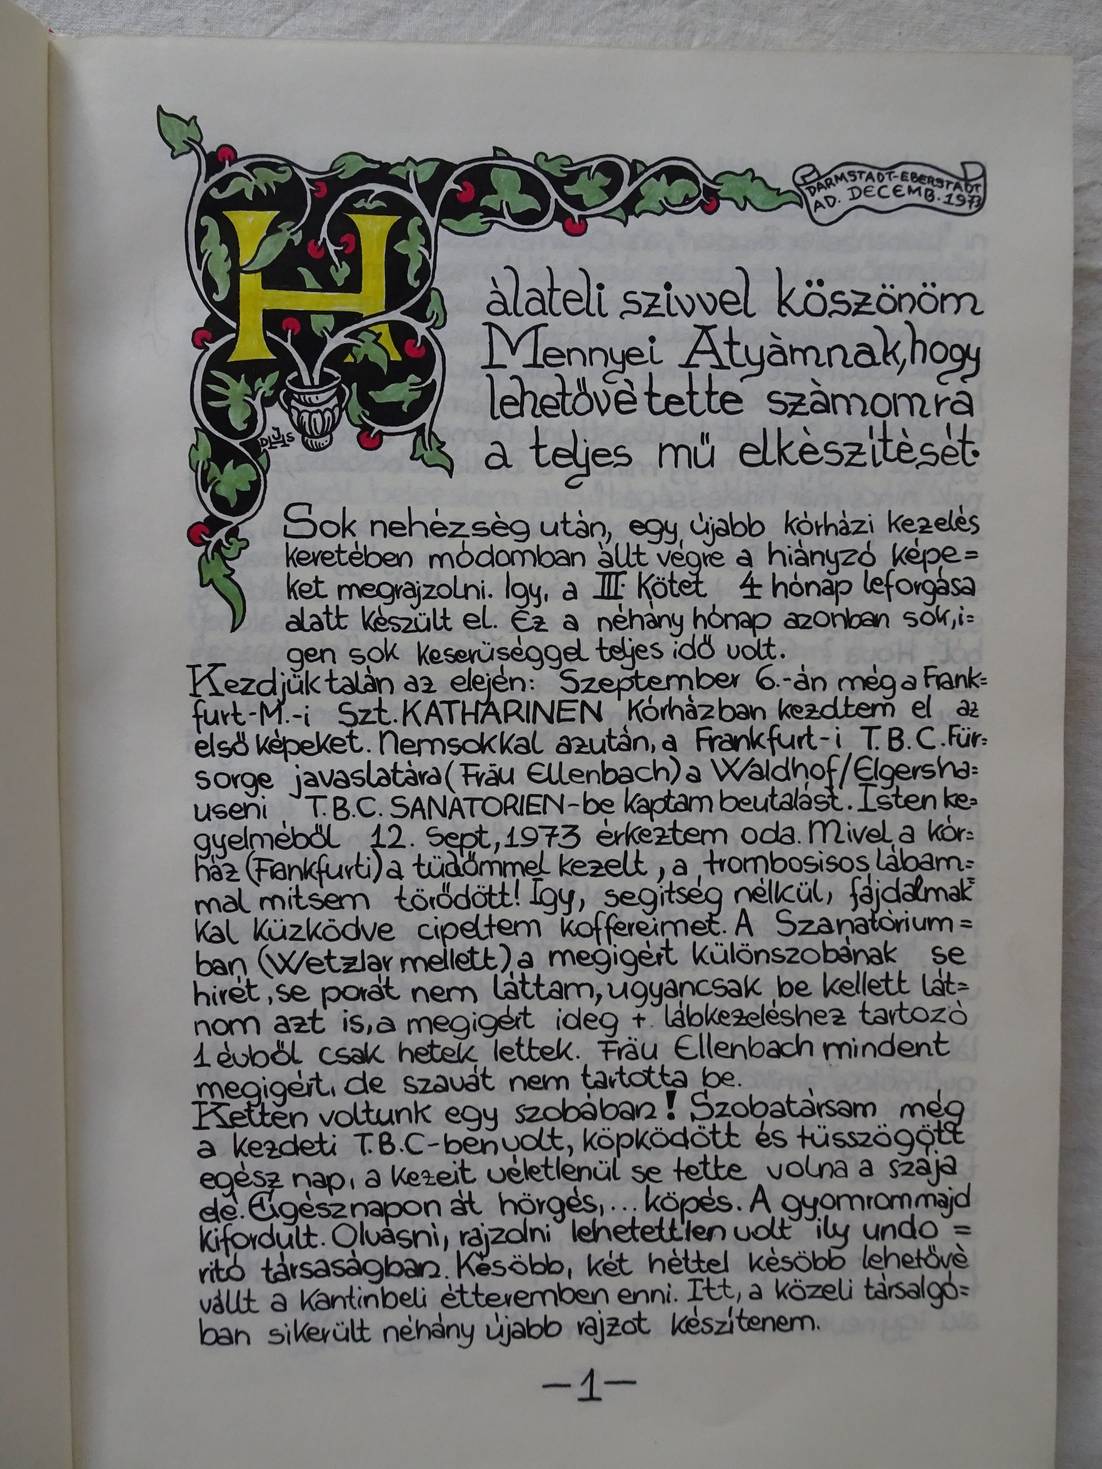 DARMSTADT-EBERSTADT
AD. DECEMB. 1973
Hàlateli szivvel köszönöm
Mennyei Atyàmnak, hogy
lehetővè tette szàmomra
a teljes mű elkèszítèsét.
Sok nehézsèg után, egy újabb kórházi kezelés
keretében módomban állt végre a hiányzó képe=
ket megrajzolni. Igy, a III. Kötet 4 hónap leforgása
alatt készült el. Ez a néhány hónap azonban sok, i=
gen sok keserüséggel teljes idő volt.
Kezdjük talán az elején: Szeptember 6.-án még a Frank=
furt-M.-i Szt. KATHARINEN Kórházban kezdtem el az
első képeket. Nemsokkal azután, a Frankfurt-i T.B.C. Für=
sorge javaslatára (Fräu Ellenbach) a Waldhof/Elgersha=
useni T.B.C. SANATORIEN-be kaptam beutalást. Isten ke=
gyelméből 12. Sept, 1973 érkeztem oda. Mivel a kór=
ház (Frankfurti) a tüdőmmel kezelt, a trombosisos lábam=
mal mitsem törődött! Így, segitség nélkül, fájdalmak=
kal küzködve cipeltem koffereimet. A Szanatórium=
ban (Wetzlar mellett) a megigért különszobának se
hirét, se porát nem láttam, ugyancsak be kellett lát=
nom azt is, a megigért ideg + lábkezeléshez tartozó
1 évből csak hetek lettek. Fräu Ellenbach mindent
megigért, de szavát nem tartotta be.
Ketten voltunk egy szobában! Szobatársam még
a kezdeti T.B.C-ben volt, köpködött és tüsszögött
egész nap, a kezeit véletlenül se tette volna a szája
elé. Egésznapon át hörgés,... köpés. A gyomrom majd
kifordult. Olvasni, rajzolni lehetettlen volt ily undo =
ritó társaságban. Késöbb, két héttel késöbb lehetővè
vállt a Kantinbeli étteremben enni. Itt, a közeli társalgó=
ban sikerült néhány újabb rajzot készítenem.
—1—